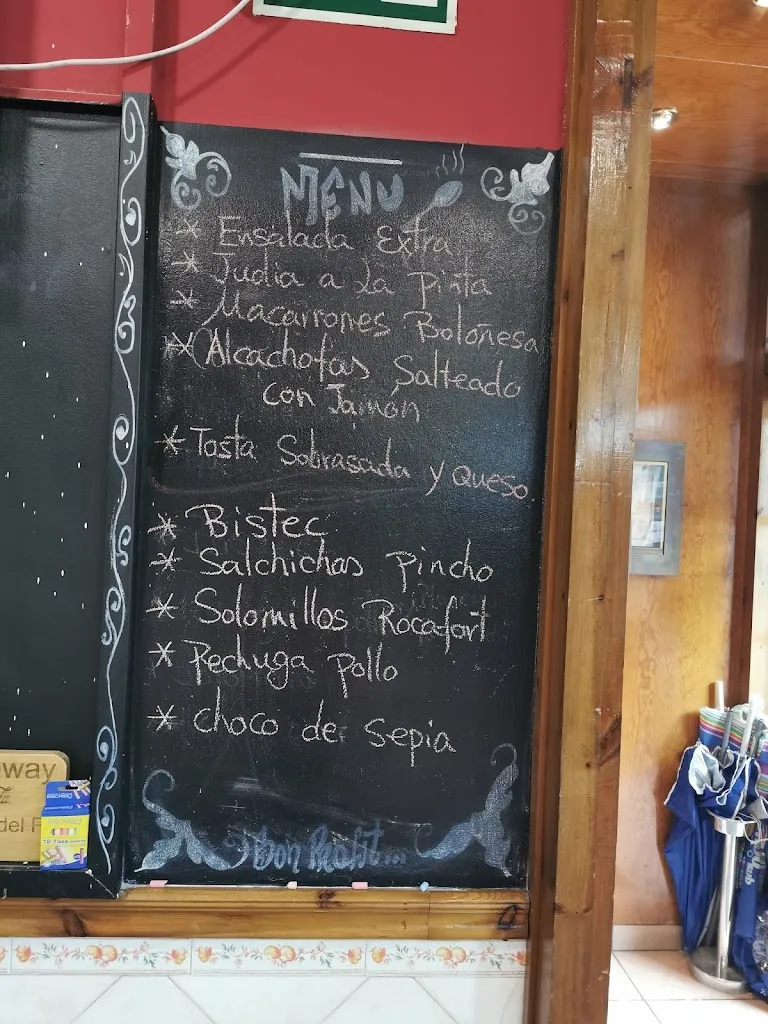 MENU
* Ensalada Extra
* Judia a La Pinta
* Macarrones Boloñesa
* Alcachofas Salteado
con Jamón
* Tosta Sobrasada y Queso
* Bistec
* Salchichas Pincho
* Solomillos Rocafort
* Pechuga Pollo
* choco de Sepia
Bon Profit...
way
del